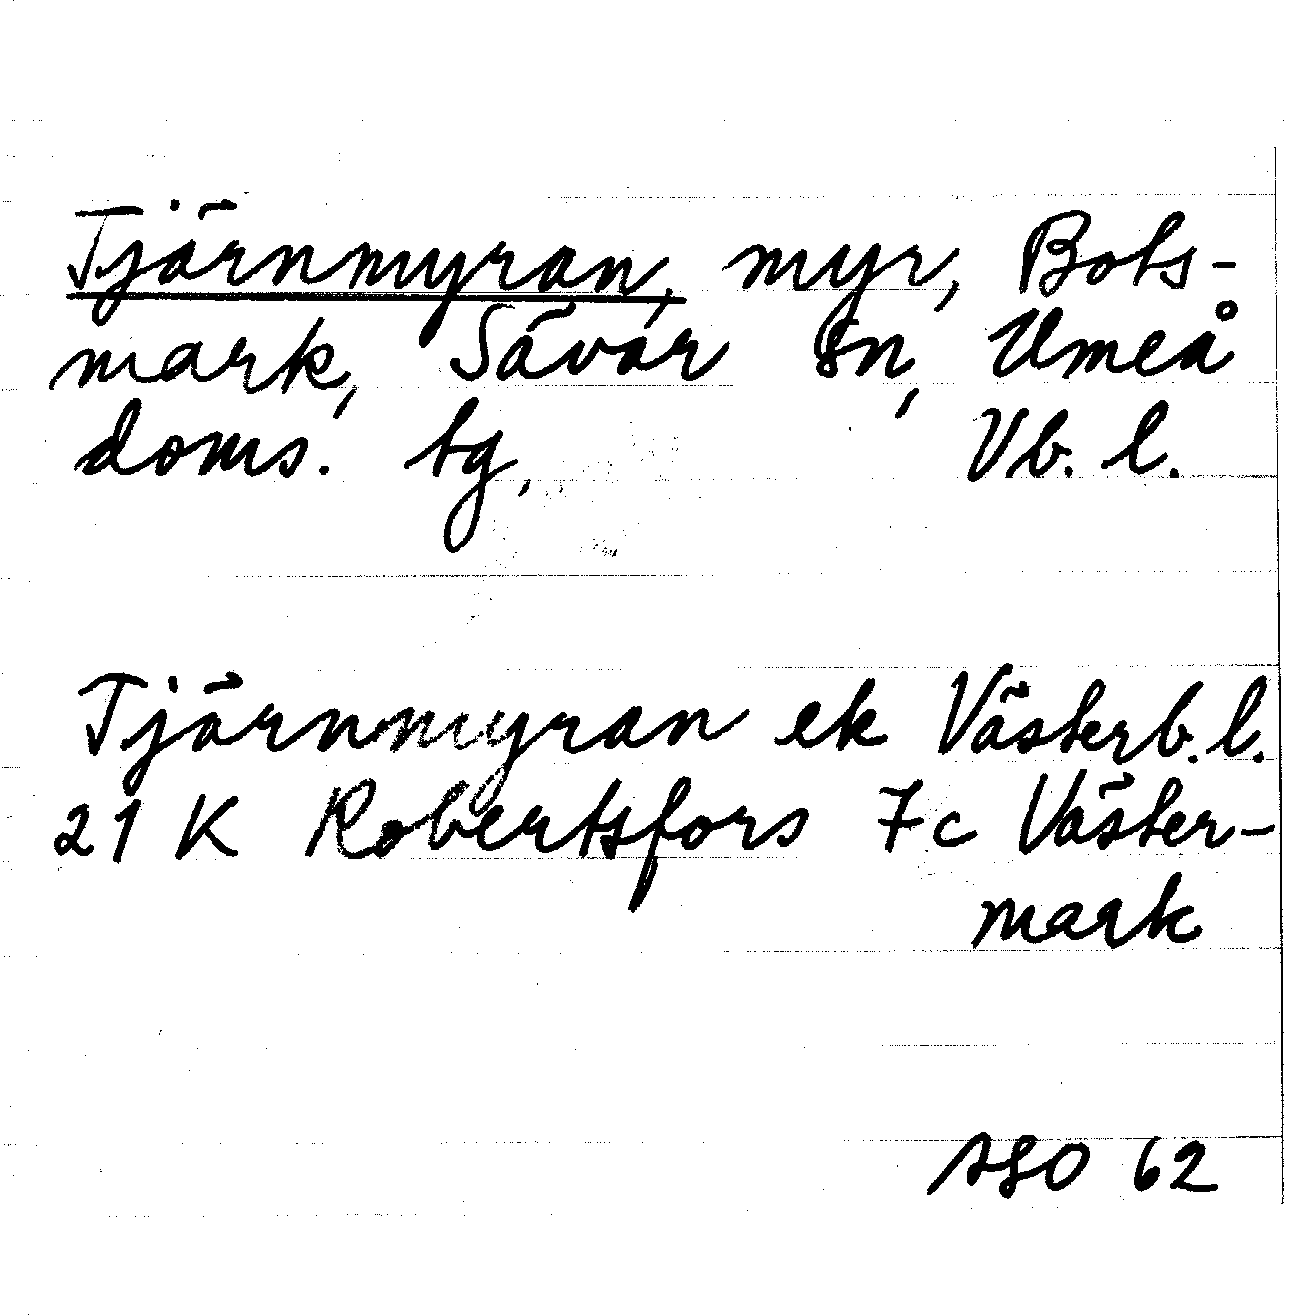 Tjärnmyran, myr, Bots-
mark, Sävar sn, Umeå
doms. tg, Vb. l.
Tjärnmyran ek Västerb. l.
21 K Robertsfors 7c Väster-
mark
ASO 62